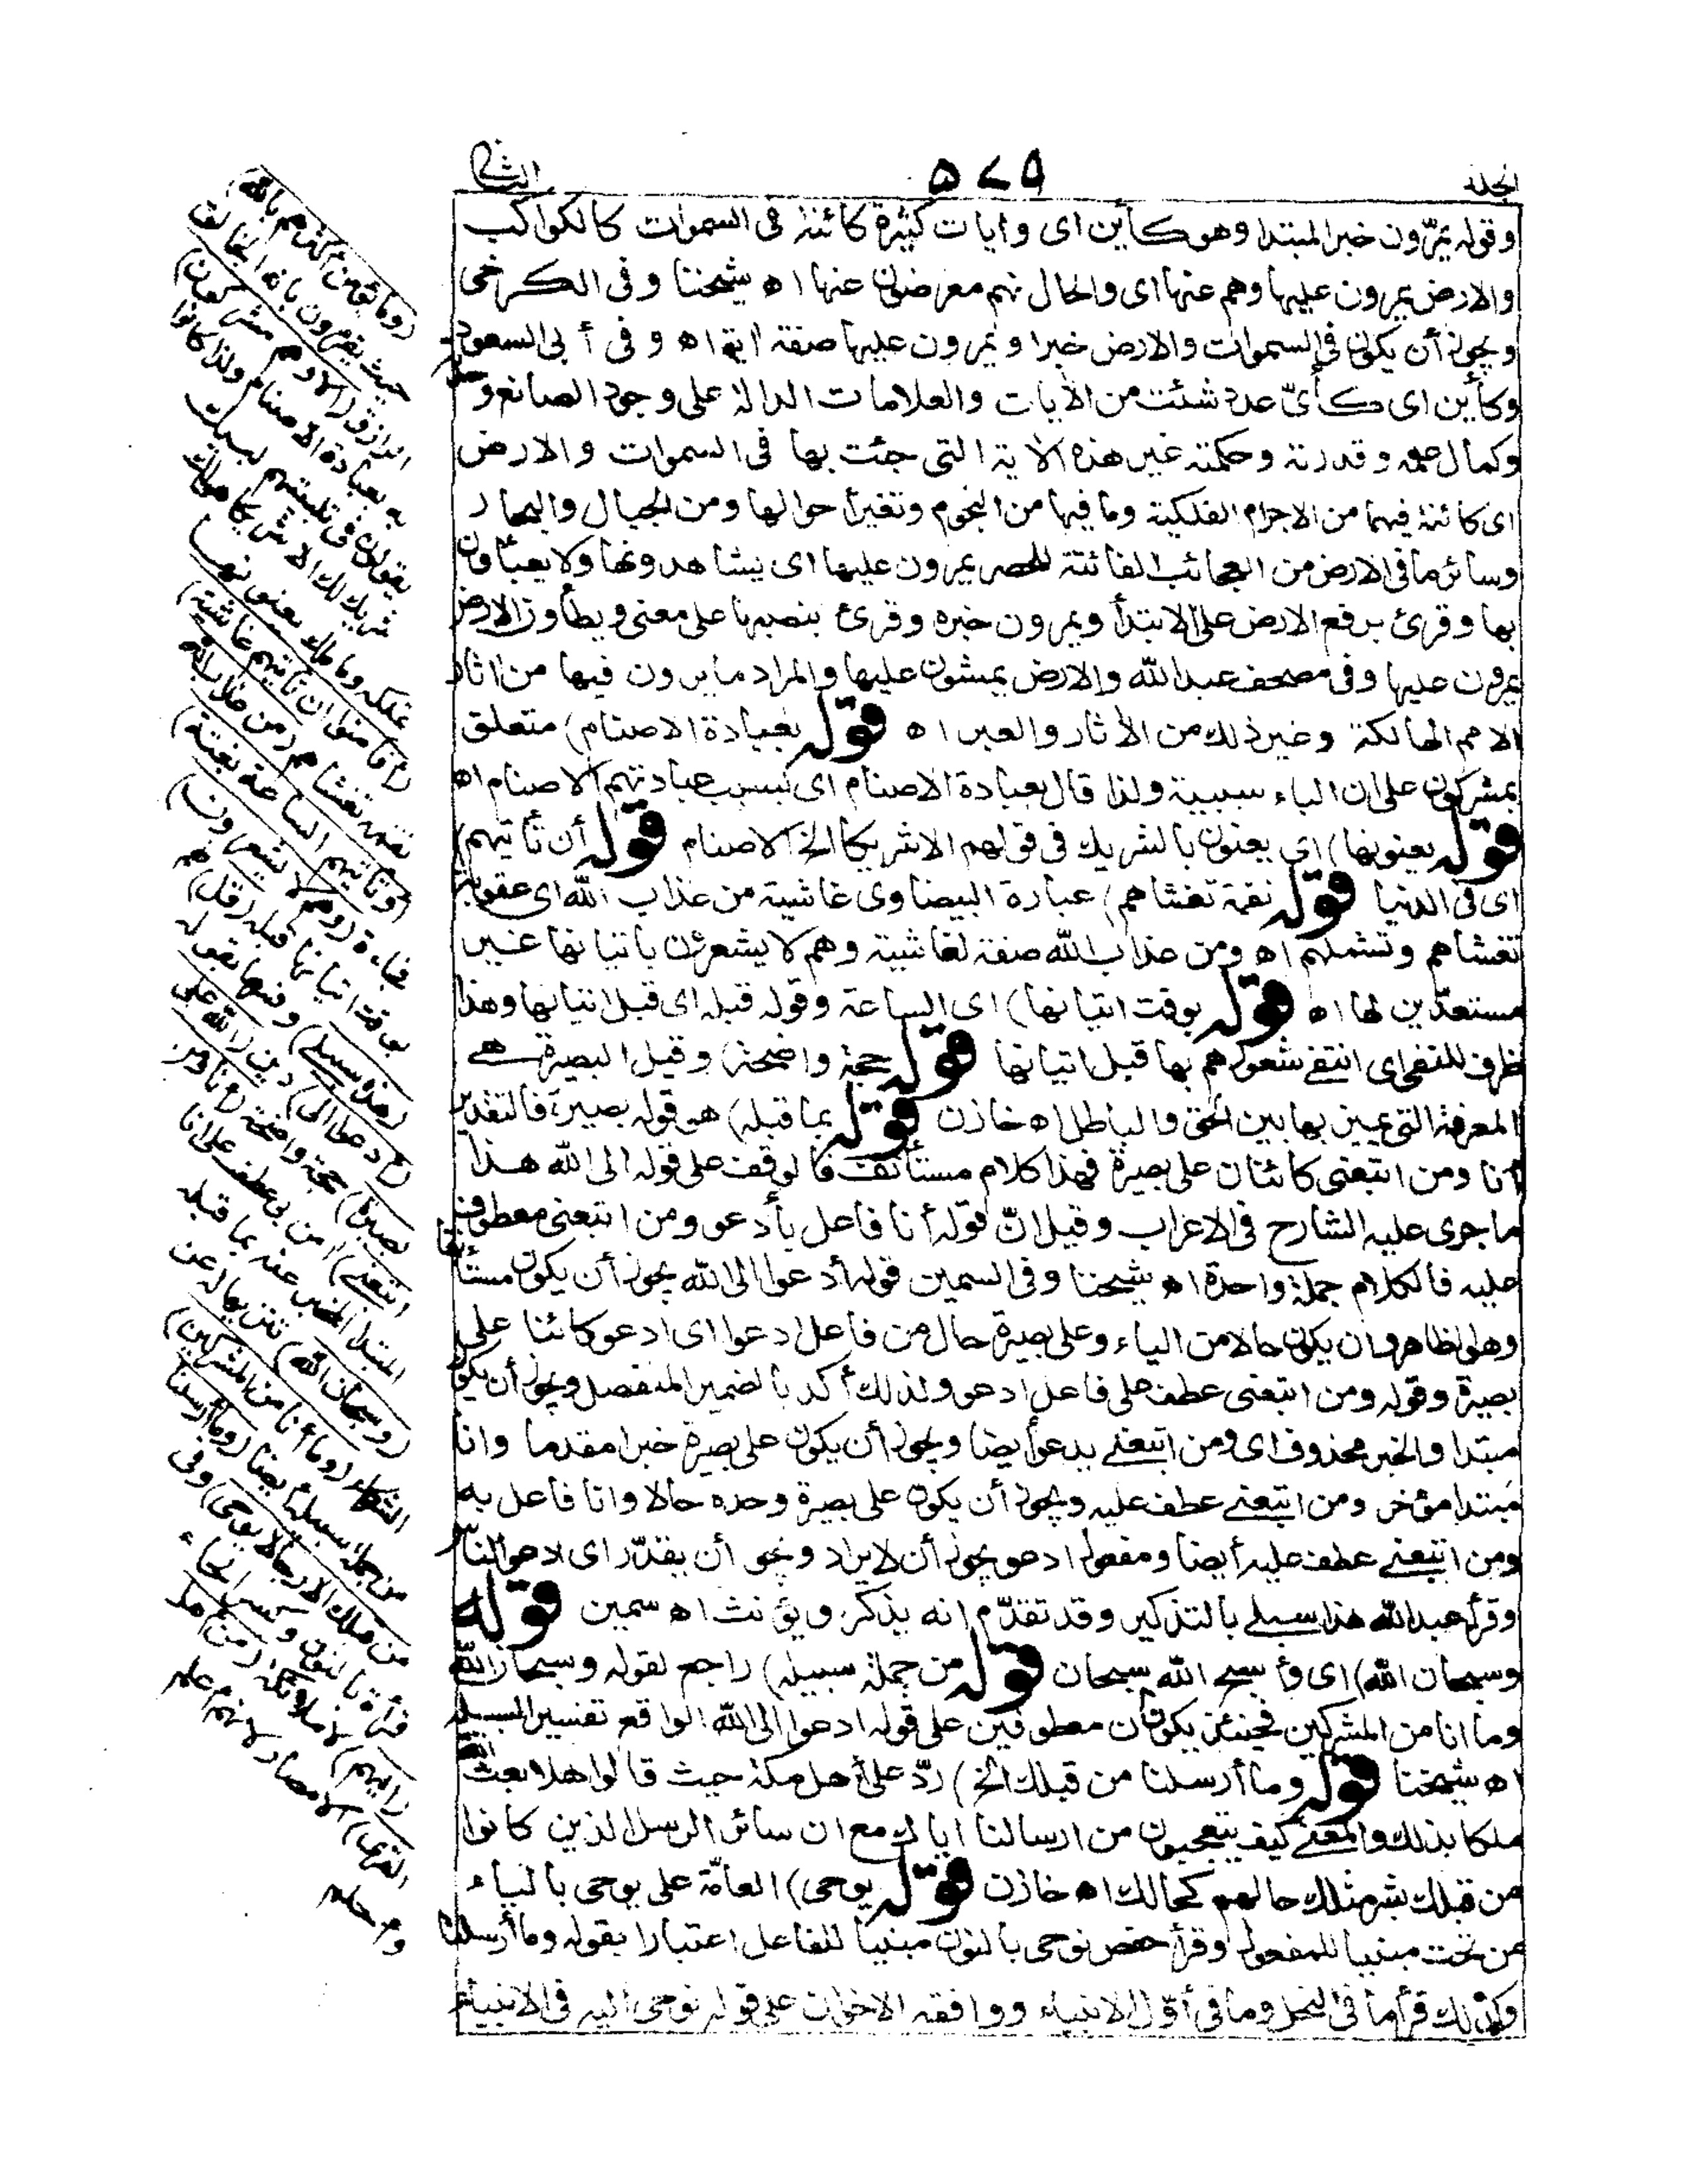 الجلد
٥٧٩
الثانی
وقوله يمرّون خبر المبتدا وهو كأين اى وايات كثيرة كائنة فى السموات كالكواكب
والارض يمرون عليها وهم عنها اى والحال نهم معرضون عنها اه شيخنا وفى الكرخى
ويجوز أن يكون فى السموات والارض خبرا ويمرون عليها صفة اية اه وفى أبى السعود
وكأين اى كأىّ عدد شئت من الأيات والعلامات الدالة على وجود الصانع و
وكمال علمه وقدرته وحكمته غير هذه الاية التى جئت بها فى السموات والارض
اى كائنة فيهما من الاجرام الفلكية وما فيها من النجوم وتغير أحوالها ومن الجبال والبحار
وسائر ما فى الارض من العجائب الفائتة للحصر يمرون عليها اى يشاهدونها ولا يعبأون
بها وقرئ برفع الارض على الابتدأ ويمرون خبره وقرئ بنصبها على معنى ويطأون الارض
يمرون عليها وفى مصحف عبد الله والارض يمشون عليها والمراد ما يرون فيها من اثار
الامم الهالكة وغير ذلك من الأثار والعبر اه قوله بعبادة الاصنام) متعلق
بمشركون على ان الباء سببية ولذا قال بعبادة الاصنام اى بسبب عبادتهم الاصنام اه
قوله يعنونها) اى يعنون بالشريك فى قولهم الا شريكا الخ الاصنام قوله أن تأتيهم)
اى فى الدنيا قوله نقمة تغشاهم) عبارة البيضاوى غاشية من عذاب الله اى عقوبة
تغشاهم وتشملهم اه ومن عذاب الله صفة لغاشية وهم لا يشعرون باتيانها غير
مستعدّين لها اه قوله بوقت اتيانها) اى الساعة وقوله قبله اى قبل اتيانها وهذا
ظرف للنفى اى انتفى شعورهم بها قبل اتيانها قوله حجة واضحة) وقيل البصيرة هى
المعرفة التى يميز بها بين الحق والباطل اه خازن قوله بما قبله) هو قوله بصيرة فالتقدير
أنا ومن اتبعنى كائنان على بصيرة فهذا كلام مستأنف فالوقف على قوله الى الله هذا
ما جرى عليه الشارح فى الاعراب وقيل انّ قوله أنا فاعل بأدعو ومن اتبعنى معطوف
عليه فالكلام جملة واحدة اه شيخنا وفى السمين قوله أدعوا الى الله يجوز أن يكون مستأنفا
وهو الظاهر وان يكون حالا من الياء وعلى بصيرة حال من فاعل ادعوا اى ادعو كائنا على
بصيرة وقوله ومن اتبعنى عطف على فاعل ادعو ولذلك أكد بالضمير المنفصل ويجوز أن يكون
مبتدا والخبر محذوف اى ومن اتبعنى يدعو أيضا ويجوز أن يكون على بصيرة خبرا مقدما وانا
مبتدا مؤخر ومن اتبعنى عطف عليه ويجوز أن يكون على بصيرة وحده حالا وانا فاعل به
ومن اتبعنى عطف عليه أيضا ومفعول ادعو يجوز أن لا يراد ويجوز أن يقدّر اى ادعو الناس
وقرأ عبد الله هذا سبيلى بالتذكير وقد تقدّم انه يذكر ويؤنث اه سمين قوله
وسبحان الله) اى وأسبح الله سبحان قوله من جملة سبيله) راجع لقوله وسبحان الله
وما انا من المشركين فحينئذ يكونان معطوفين على قوله ادعوا الى الله الواقع تفسير السبيله
اه شيخنا قوله وما أرسلنا من قبلك الخ) ردّ على أهل مكة حيث قالوا هلا بعث الله
ملكا بذلك والمعنى كيف يتعجبون من ارسالنا اياك مع ان سائر الرسل الذين كانوا
من قبلك بشر مثلك حالهم كحالك اه خازن قوله يوحى) العامّة على يوحى بالياء
من تحت مبنيا للمفعول وقرأ حفص نوحى بالنون مبنيا للفاعل اعتبارا بقوله وما أرسلنا
وكذلك قرأ ما فى النحل وما فى أوّل الانبياء ووافقه الاخوان على قوله نوحى اليه فى الانبياء
(وما يؤمن أكثرهم بالله)
حيث يقرون بانه الخالق
الرازق (الا وهم مشركون)
به بعبادة الاصنام ولذا كانوا
يقولون فى تلبيتهم لبيك
لا شريك لك الا شريكا هو لك
تملكه وما ملك يعنونها
(أفأمنوا ان تأتيهم غاشية)
نقمة تغشاهم (من عذاب الله
أو تأتيهم الساعة بغتة)
فجاءة (وهم لا يشعرون)
بوقت اتيانها قبله (قل) لهم
(هذه سبيلى) وفسرها بقوله
(أدعوا الى) دين (الله على
بصيرة) حجة واضحة (أنا ومن
اتبعنى) امن بى عطف على انا
المبتدا المخبر عنه بما قبله
(وسبحان الله) تنزيها له عن
الشركاء (وما أنا من المشركين)
من جملة سبيله أيضا (وما أرسلنا
من قبلك الا رجالا يوحى) وفى
قرأة بالنون وكسر الحاء
(اليهم) لا ملائكة (من أهل
القرى) الامصار لانهم اعلم
واحلم